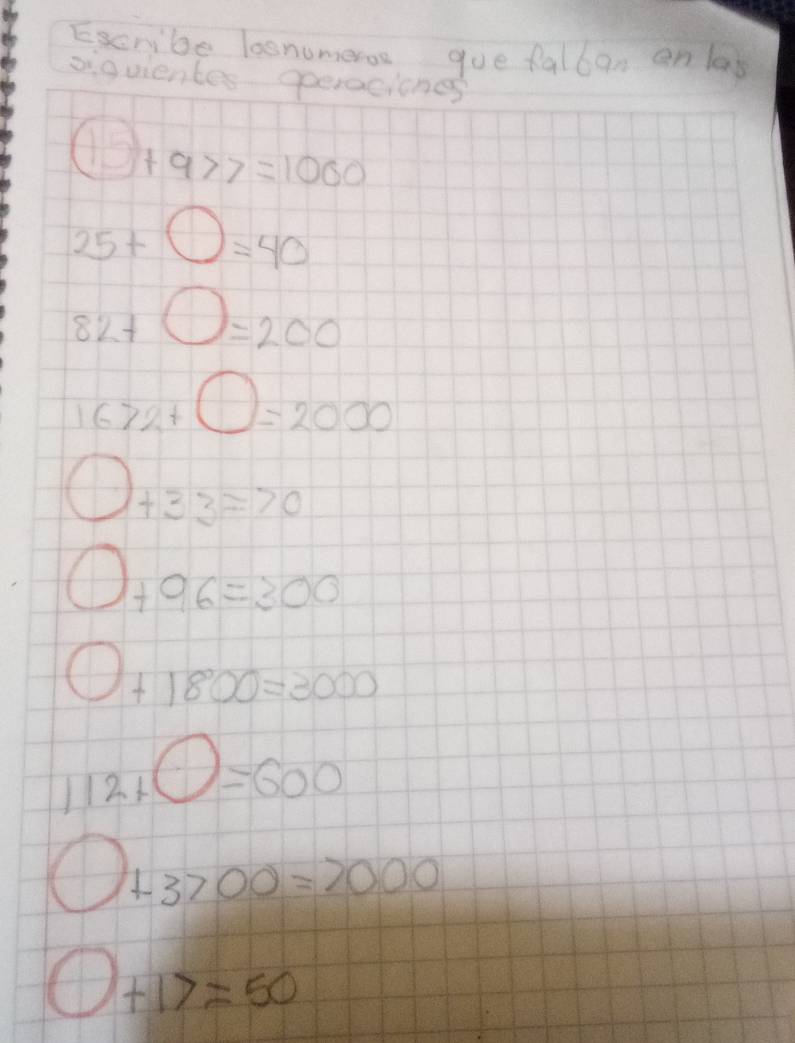 Escribe los numeros que faltan en las
siguientes operaciones
15 + 977 = 1000
25 + ○ = 40
82 + ○ = 200
1672 + ○ = 2000
○ + 33 = 70
○ + 96 = 300
○ + 1800 = 3000
112 + ○ = 600
○ + 3700 = 7000
○ + 17 = 50